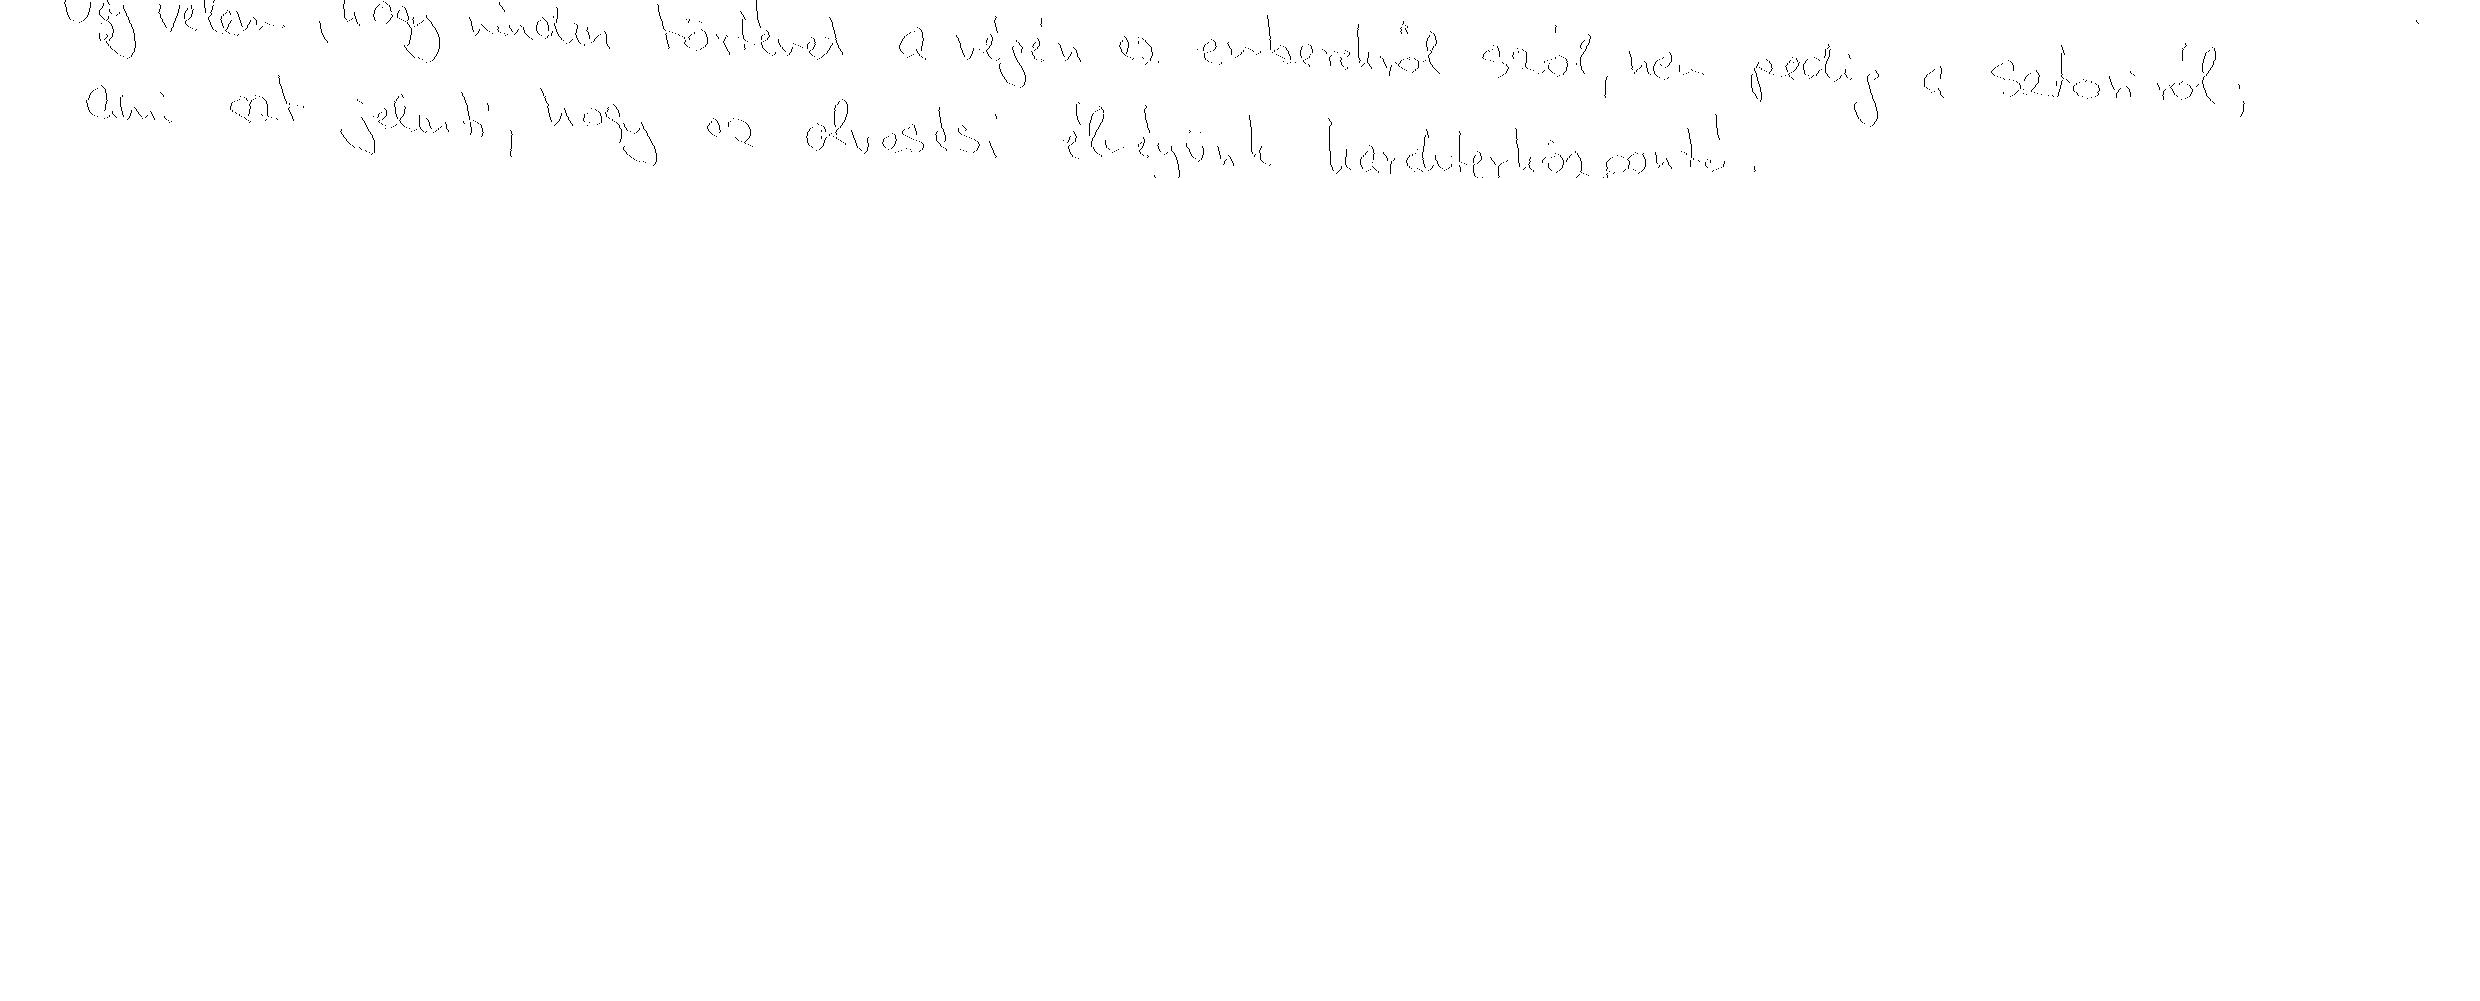 Úgy vélem, hogy minden történet a végén az emberekről szól, nem pedig a sztoriról;
ami azt jelenti, hogy az olvasási élvezünk karakterközpontú.